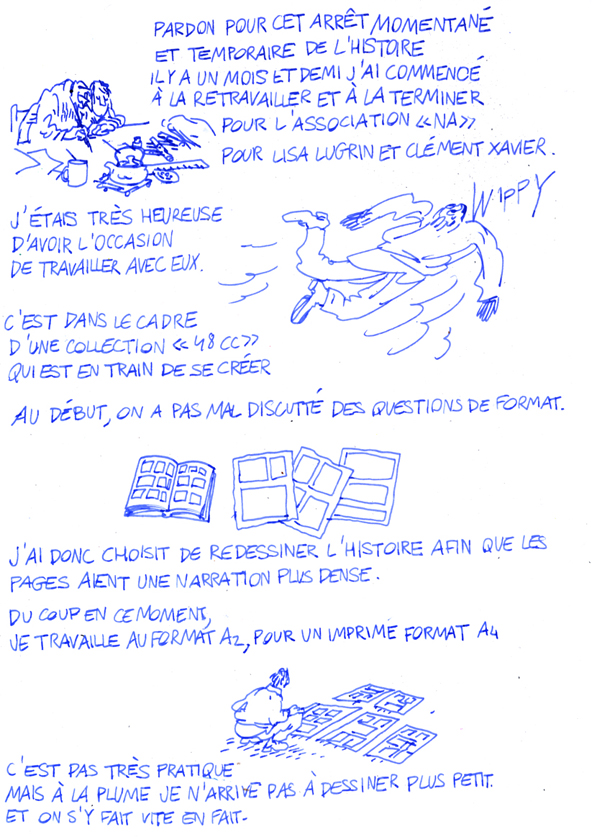 PARDON POUR CET ARRÊT MOMENTANÉ
ET TEMPORAIRE DE L'HISTOIRE
IL Y A UN MOIS ET DEMI J'AI COMMENCÉ
À LA RETRAVAILLER ET À LA TERMINER
POUR L'ASSOCIATION «NA»
POUR LISA LUGRIN ET CLÉMENT XAVIER.
WIPPY
J'ÉTAIS TRÈS HEUREUSE
D'AVOIR L'OCCASION
DE TRAVAILLER AVEC EUX.
C'EST DANS LE CADRE
D'UNE COLLECTION «48 CC»
QUI EST EN TRAIN DE SE CRÉER
AU DÉBUT, ON A PAS MAL DISCUTTÉ DES QUESTIONS DE FORMAT.
J'AI DONC CHOISIT DE REDESSINER L'HISTOIRE AFIN QUE LES
PAGES AIENT UNE NARRATION PLUS DENSE.
DU COUP EN CE MOMENT,
JE TRAVAILLE AU FORMAT A2, POUR UN IMPRIMÉ FORMAT A4
C'EST PAS TRÈS PRATIQUE
MAIS À LA PLUME JE N'ARRIVE PAS À DESSINER PLUS PETIT.
ET ON S'Y FAIT VITE EN FAIT-